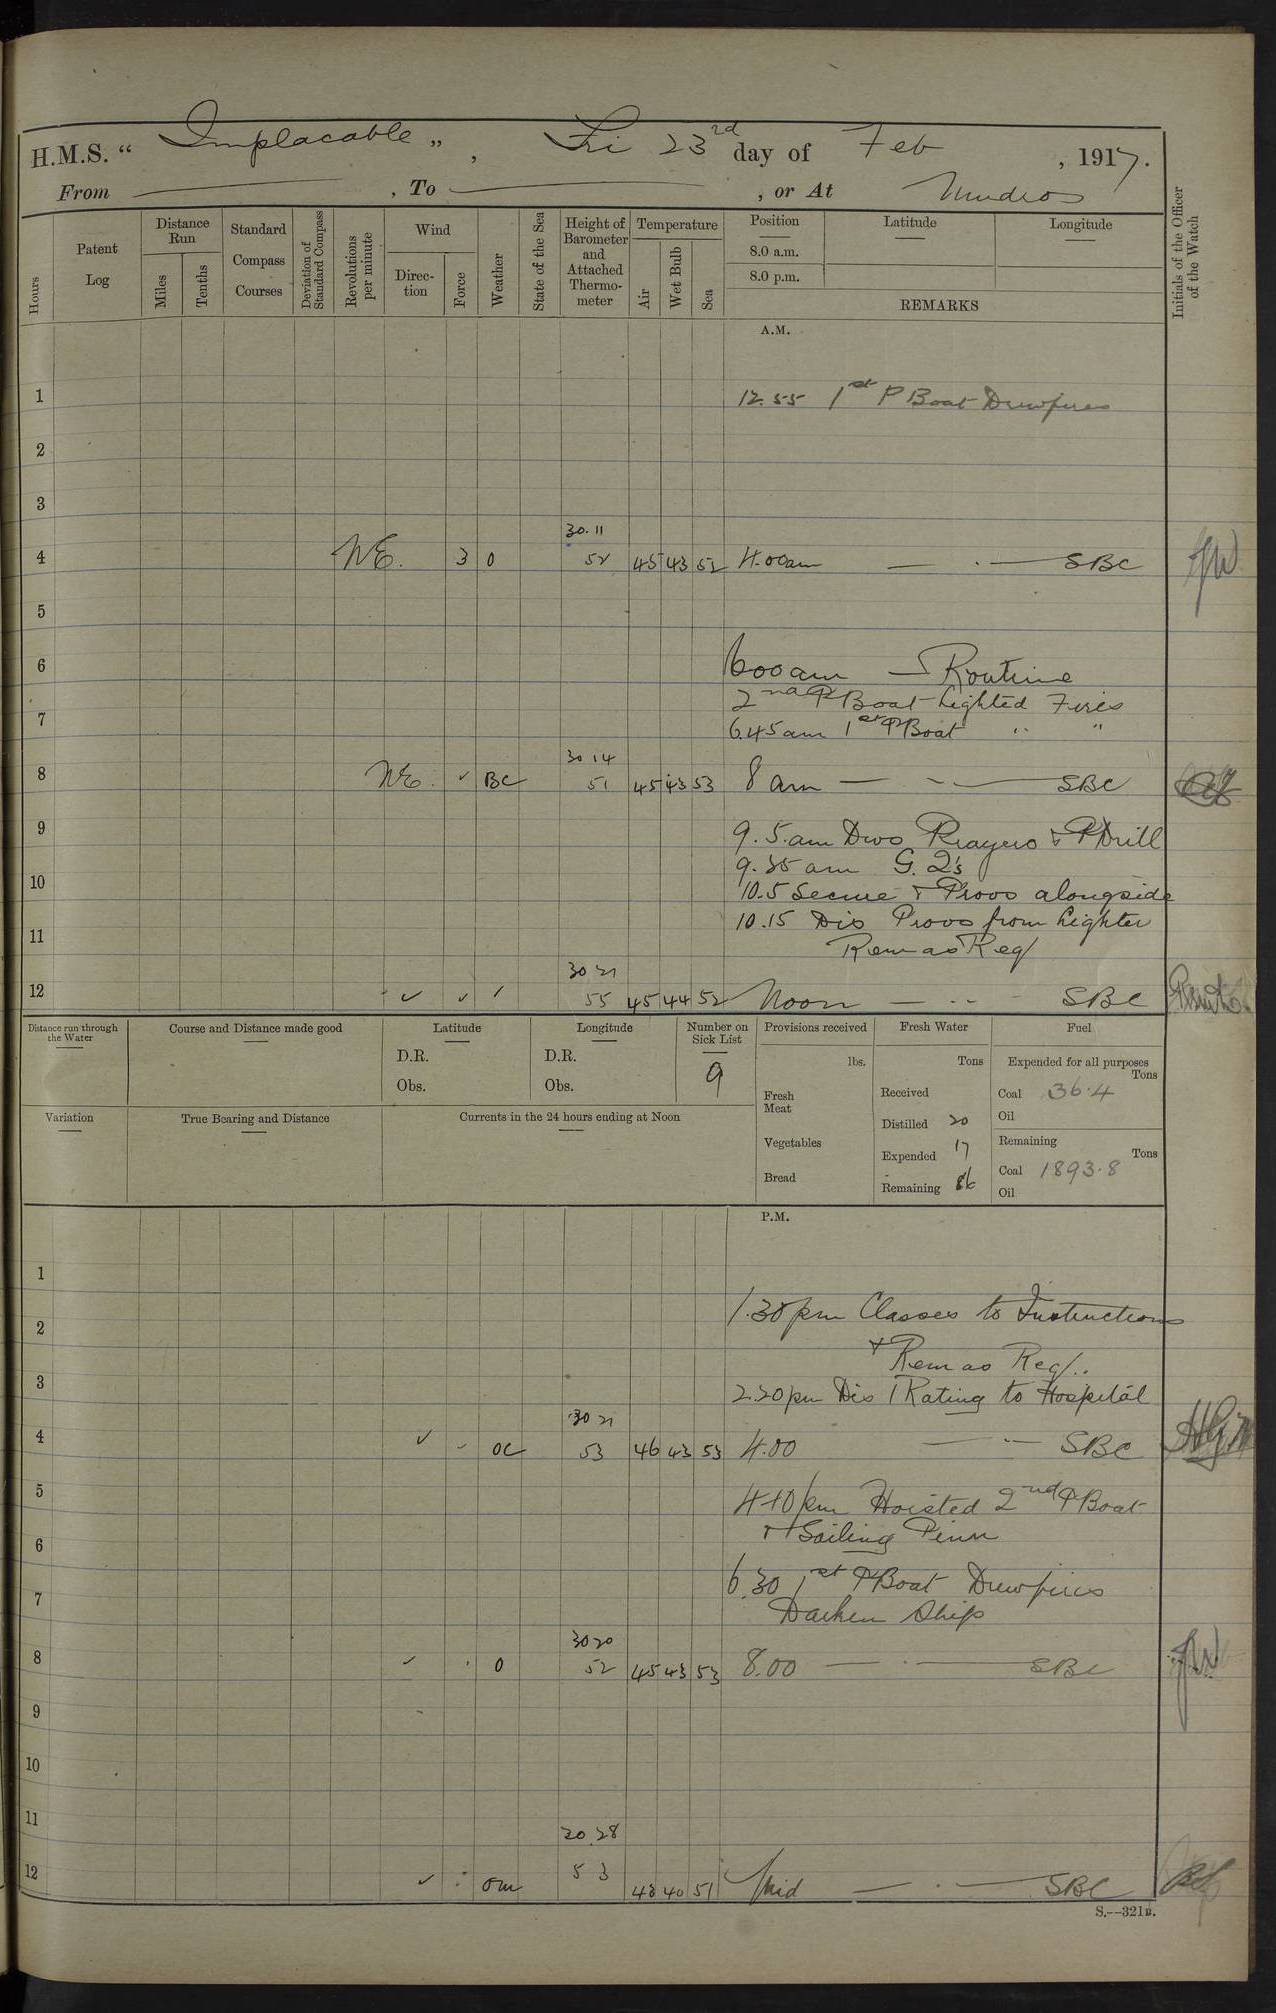 H.M.S. “ Implacable „ , Fri 23rd day of Feb , 1917.
From , To , or At Mudros
Hours
Patent Log
Distance Run
Miles
Tenths
Standard Compass Courses
Deviation of Standard Compass
Revolutions per minute
Wind
Direction
Force
Weather
State of the Sea
Height of Barometer and Attached Thermometer
Temperature
Air
Wet Bulb
Sea
Position
8.0 a.m.
8.0 p.m.
Latitude
Longitude
REMARKS
Initials of the Officer of the Watch
A.M.
1 12.55 1st P Boat Drew fires
2
3
30.11
4 NE. 3 0 52 45 43 52 4.00am — · — SBC
5
6 6 00 am — Routine
2nd P Boat Lighted Fires
7 6.45 am 1st P Boat " "
30 14
8 NE. ✓ BC 51 45 43 53 8 am — - — SBC
9 9.5.am Divs Prayers & P Drill
9.35 am G. Q's
10 10.5 Secure & Provs alongside
10.15 Dis Provs from Lighter
11 Rem as Req
30 21
12 ✓ ✓ ' 55 45 44 52 Noon — -- SBC
Distance run through the Water
Course and Distance made good
Latitude
D.R.
Obs.
Longitude
D.R.
Obs.
Number on Sick List
9
Provisions received
lbs.
Fresh Meat
Vegetables
Bread
Fresh Water
Tons
Received
Distilled 20
Expended 17
Remaining 86
Fuel
Expended for all purposes
Tons
Coal 36.4
Oil
Remaining
Tons
Coal 1893.8
Oil
Variation
True Bearing and Distance
Currents in the 24 hours ending at Noon
P.M.
1
1.30 pm Classes to Instructions
2
& Rem as Req.
3 2.20 pm Dis 1 Rating to Hospital
30 21
4 ✓ - OC 53 46 43 53 4.00 — — SBC
5 4.10 pm Hoisted 2nd P Boat
6 & Sailing Pinn
6.30 1st P Boat Drew fires
7 Darken Ship
30 20
8 ✓ ' 0 52 45 43 53 8.00 — · — SBC
9
10
11
30.28
12 ✓ : om 53 43 40 51 Mid — · — SBC
S.--321B.